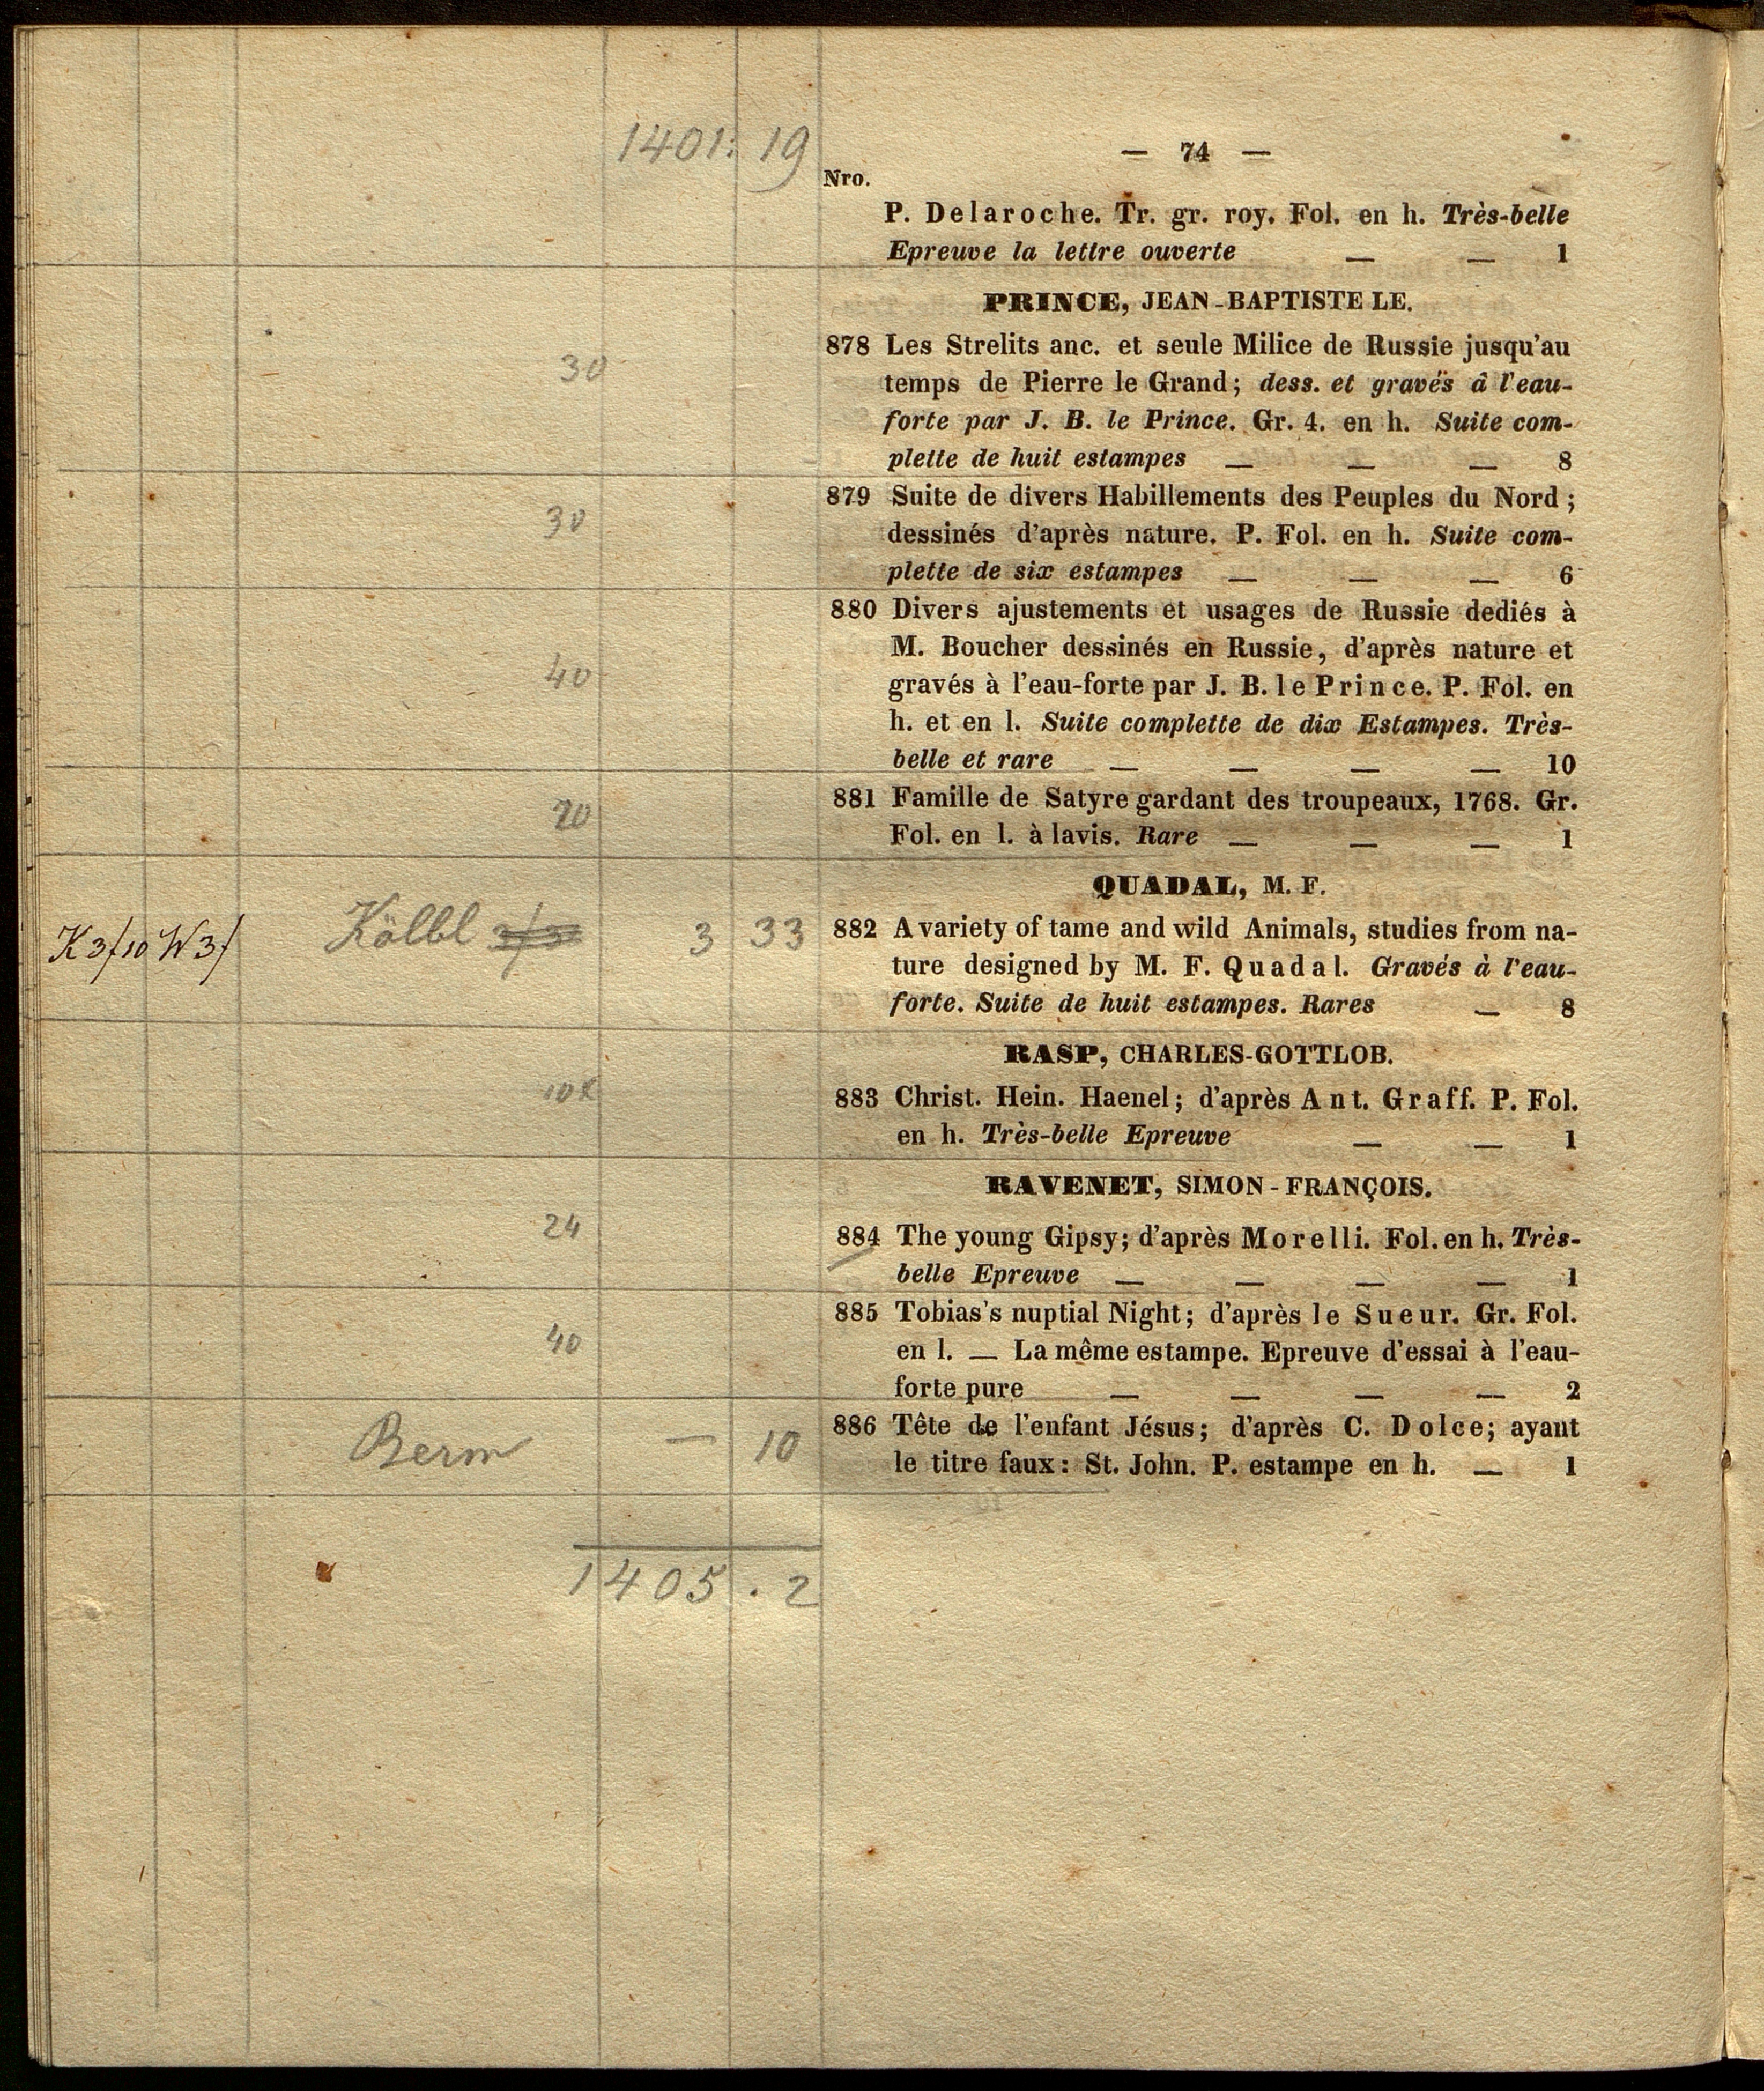 1401: 19
— 74 —
Nro.
P. Delaroche. Tr. gr. roy. Fol. en h. Très-belle
Epreuve la lettre ouverte — — 1
PRINCE, JEAN-BAPTISTE LE.
30
878 Les Strelits anc. et seule Milice de Russie jusqu'au
temps de Pierre le Grand; dess. et gravés à l'eau-
forte par J. B. le Prince. Gr. 4. en h. Suite com-
plette de huit estampes — — — 8
30
879 Suite de divers Habillements des Peuples du Nord;
dessinés d'après nature. P. Fol. en h. Suite com-
plette de six estampes — — — 6
40
880 Divers ajustements et usages de Russie dediés à
M. Boucher dessinés en Russie, d'après nature et
gravés à l'eau-forte par J. B. le Prince. P. Fol. en
h. et en l. Suite complette de dix Estampes. Très-
belle et rare — — — — 10
20
881 Famille de Satyre gardant des troupeaux, 1768. Gr.
Fol. en l. à lavis. Rare — — — 1
QUADAL, M. F.
K 3f10 W 3f Kölbl 3 33
882 A variety of tame and wild Animals, studies from na-
ture designed by M. F. Quadal. Gravés à l'eau-
forte. Suite de huit estampes. Rares — 8
RASP, CHARLES-GOTTLOB.
883 Christ. Hein. Haenel; d'après Ant. Graff. P. Fol.
en h. Très-belle Epreuve — — 1
RAVENET, SIMON-FRANÇOIS.
24
884 The young Gipsy; d'après Morelli. Fol. en h. Très-
belle Epreuve — — — — 1
40
885 Tobias's nuptial Night; d'après le Sueur. Gr. Fol.
en l. — La même estampe. Epreuve d'essai à l'eau-
forte pure — — — — 2
Berm — 10
886 Tête de l'enfant Jésus; d'après C. Dolce; ayant
le titre faux: St. John. P. estampe en h. — 1
1405 . 2